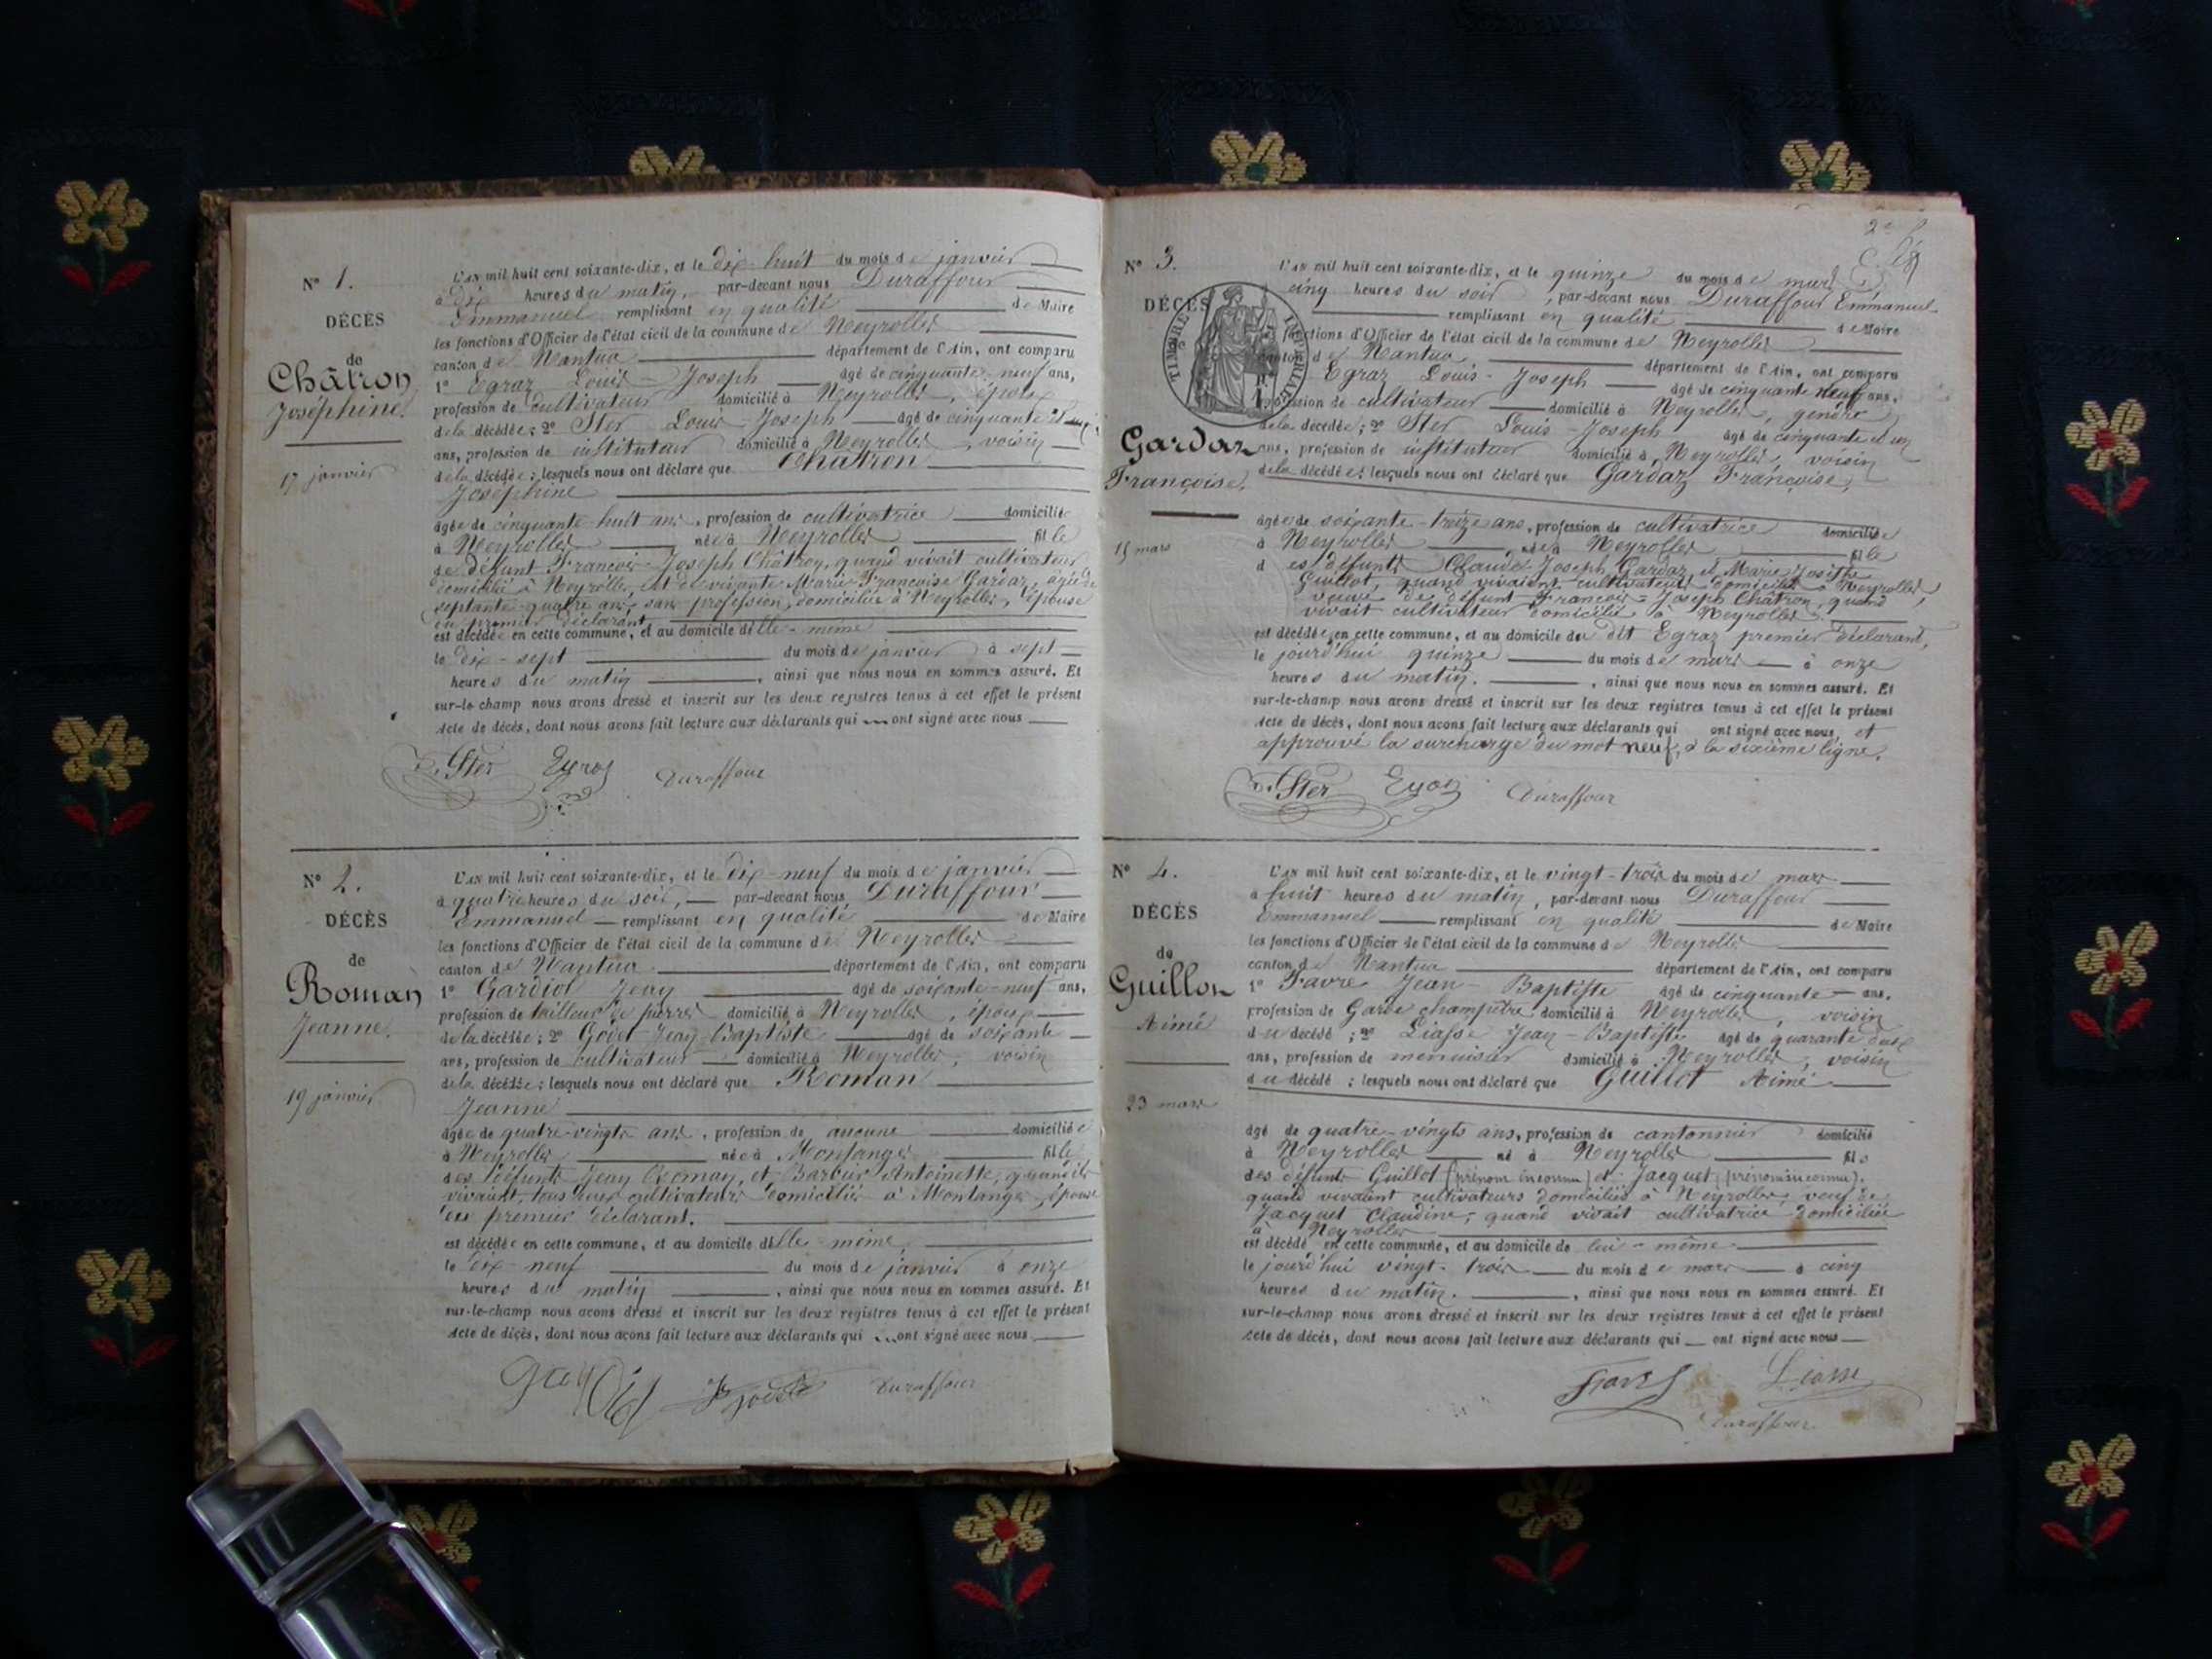 N° 1.
DÉCÈS
de
Châtron
Joséphine.
17 janvier
L'AN mil huit cent soixante-dix, et le dix-huit du mois de janvier
à dix heures du matin, par-devant nous Duraffour
Emmanuel remplissant en qualité de Maire
les fonctions d'Officier de l'état civil de la commune de Neyrolles
canton de Nantua département de l'Ain, ont comparu
1° Egraz Louis-Joseph âgé de cinquante-neuf ans,
profession de cultivateur domicilié à Neyrolles, époux
de la décédée; 2° Ster Louis-Joseph âgé de cinquante et un
ans, profession de instituteur domicilié à Neyrolles, voisin
de la décédée; lesquels nous ont déclaré que Châtron
Joséphine
âgée de cinquante-huit ans, profession de cultivatrice domiciliée
à Neyrolles née à Neyrolles fille
de défunt François-Joseph Châtron, quand vivait cultivateur
domicilié à Neyrolles, et de vivante Marie Françoise Gardaz, âgée de
septante-quatre ans, sans profession, domiciliée à Neyrolles, épouse
du premier déclarant
est décédée en cette commune, et au domicile d'elle-même
le dix-sept du mois de janvier à sept
heures du matin, ainsi que nous nous en sommes assuré. Et
sur-le-champ nous avons dressé et inscrit sur les deux registres tenus à cet effet le présent
Acte de décès, dont nous avons fait lecture aux déclarants qui ont signé avec nous
Ster Egraz Duraffour
N° 2.
DÉCÈS
de
Roman
Jeanne.
19 janvier
L'AN mil huit cent soixante-dix, et le dix-neuf du mois de janvier
à quatre heures du soir, par-devant nous Duraffour
Emmanuel remplissant en qualité de Maire
les fonctions d'Officier de l'état civil de la commune de Neyrolles
canton de Nantua département de l'Ain, ont comparu
1° Gardiol Jean âgé de soixante-neuf ans,
profession de tailleur de pierres domicilié à Neyrolles, époux
de la décédée; 2° Godet Jean-Baptiste âgé de soixante
ans, profession de cultivateur domicilié à Neyrolles, voisin
de la décédée; lesquels nous ont déclaré que Roman
Jeanne
âgée de quatre-vingts ans, profession de aucune domiciliée
à Neyrolles née à Montanges fille
des défunts Jean Roman, et Barbier Antoinette, quand ils
vivaient, tous deux cultivateurs domiciliés à Montanges, épouse
du premier déclarant.
est décédée en cette commune, et au domicile d'elle-même
le dix-neuf du mois de janvier à onze
heures du matin, ainsi que nous nous en sommes assuré. Et
sur-le-champ nous avons dressé et inscrit sur les deux registres tenus à cet effet le présent
Acte de décès, dont nous avons fait lecture aux déclarants qui ont signé avec nous
Duraffour
N° 3.
DÉCÈS
TIMBRE IMPERIAL
Gardaz
Françoise.
15 mars
L'AN mil huit cent soixante-dix, et le quinze du mois de mars
cinq heures du soir, par-devant nous Duraffour Emmanuel
remplissant en qualité de Maire
fonctions d'Officier de l'état civil de la commune de Neyrolles
canton de Nantua département de l'Ain, ont comparu
Egraz Louis-Joseph âgé de cinquante neuf ans,
profession de cultivateur domicilié à Neyrolles, gendre
de la décédée; 2° Ster Louis-Joseph âgé de cinquante et un
ans, profession de instituteur domicilié à Neyrolles, voisin
de la décédée; lesquels nous ont déclaré que Gardaz Françoise,
âgée de soixante-treize ans, profession de cultivatrice domiciliée
à Neyrolles née à Neyrolles fille
des défunts Claude Joseph Gardaz et Marie Josephe
Guillot, quand vivaient cultivateurs domiciliés à Neyrolles,
veuve de défunt François-Joseph Châtron, quand
vivait cultivateur domicilié à Neyrolles
est décédée en cette commune, et au domicile du dit Egraz premier déclarant,
le jourd'hui quinze du mois de mars à onze
heures du matin, ainsi que nous nous en sommes assuré. Et
sur-le-champ nous avons dressé et inscrit sur les deux registres tenus à cet effet le présent
Acte de décès, dont nous avons fait lecture aux déclarants qui ont signé avec nous, et
approuvé la surcharge du mot neuf, à la sixième ligne.
Ster Duraffour
N° 4.
DÉCÈS
de
Guillon
Aimé
23 mars
L'AN mil huit cent soixante-dix, et le vingt-trois du mois de mars
à huit heures du matin, par-devant nous Duraffour
Emmanuel remplissant en qualité de Maire
les fonctions d'Officier de l'état civil de la commune de Neyrolles
canton de Nantua département de l'Ain, ont comparu
1° Favre Jean-Baptiste âgé de cinquante ans,
profession de Garde champêtre domicilié à Neyrolles, voisin
du décédé; 2° Liasse Jean-Baptiste âgé de quarante deux
ans, profession de menuisier domicilié à Neyrolles, voisin
du décédé; lesquels nous ont déclaré que Guillot Aimé
âgé de quatre-vingts ans, profession de cantonnier domicilié
à Neyrolles né à Neyrolles fils
des défunts Guillot (prénom inconnu) et Jacquet (prénom inconnu),
quand vivaient cultivateurs domiciliés à Neyrolles, veuf de
Jacquet Claudine; quand vivait cultivatrice domiciliée
à Neyrolles
est décédé en cette commune, et au domicile de lui-même
le jourd'hui vingt-trois du mois de mars à cinq
heures du matin, ainsi que nous nous en sommes assuré. Et
sur-le-champ nous avons dressé et inscrit sur les deux registres tenus à cet effet le présent
Acte de décès, dont nous avons fait lecture aux déclarants qui ont signé avec nous
Favre Liasse
Duraffour